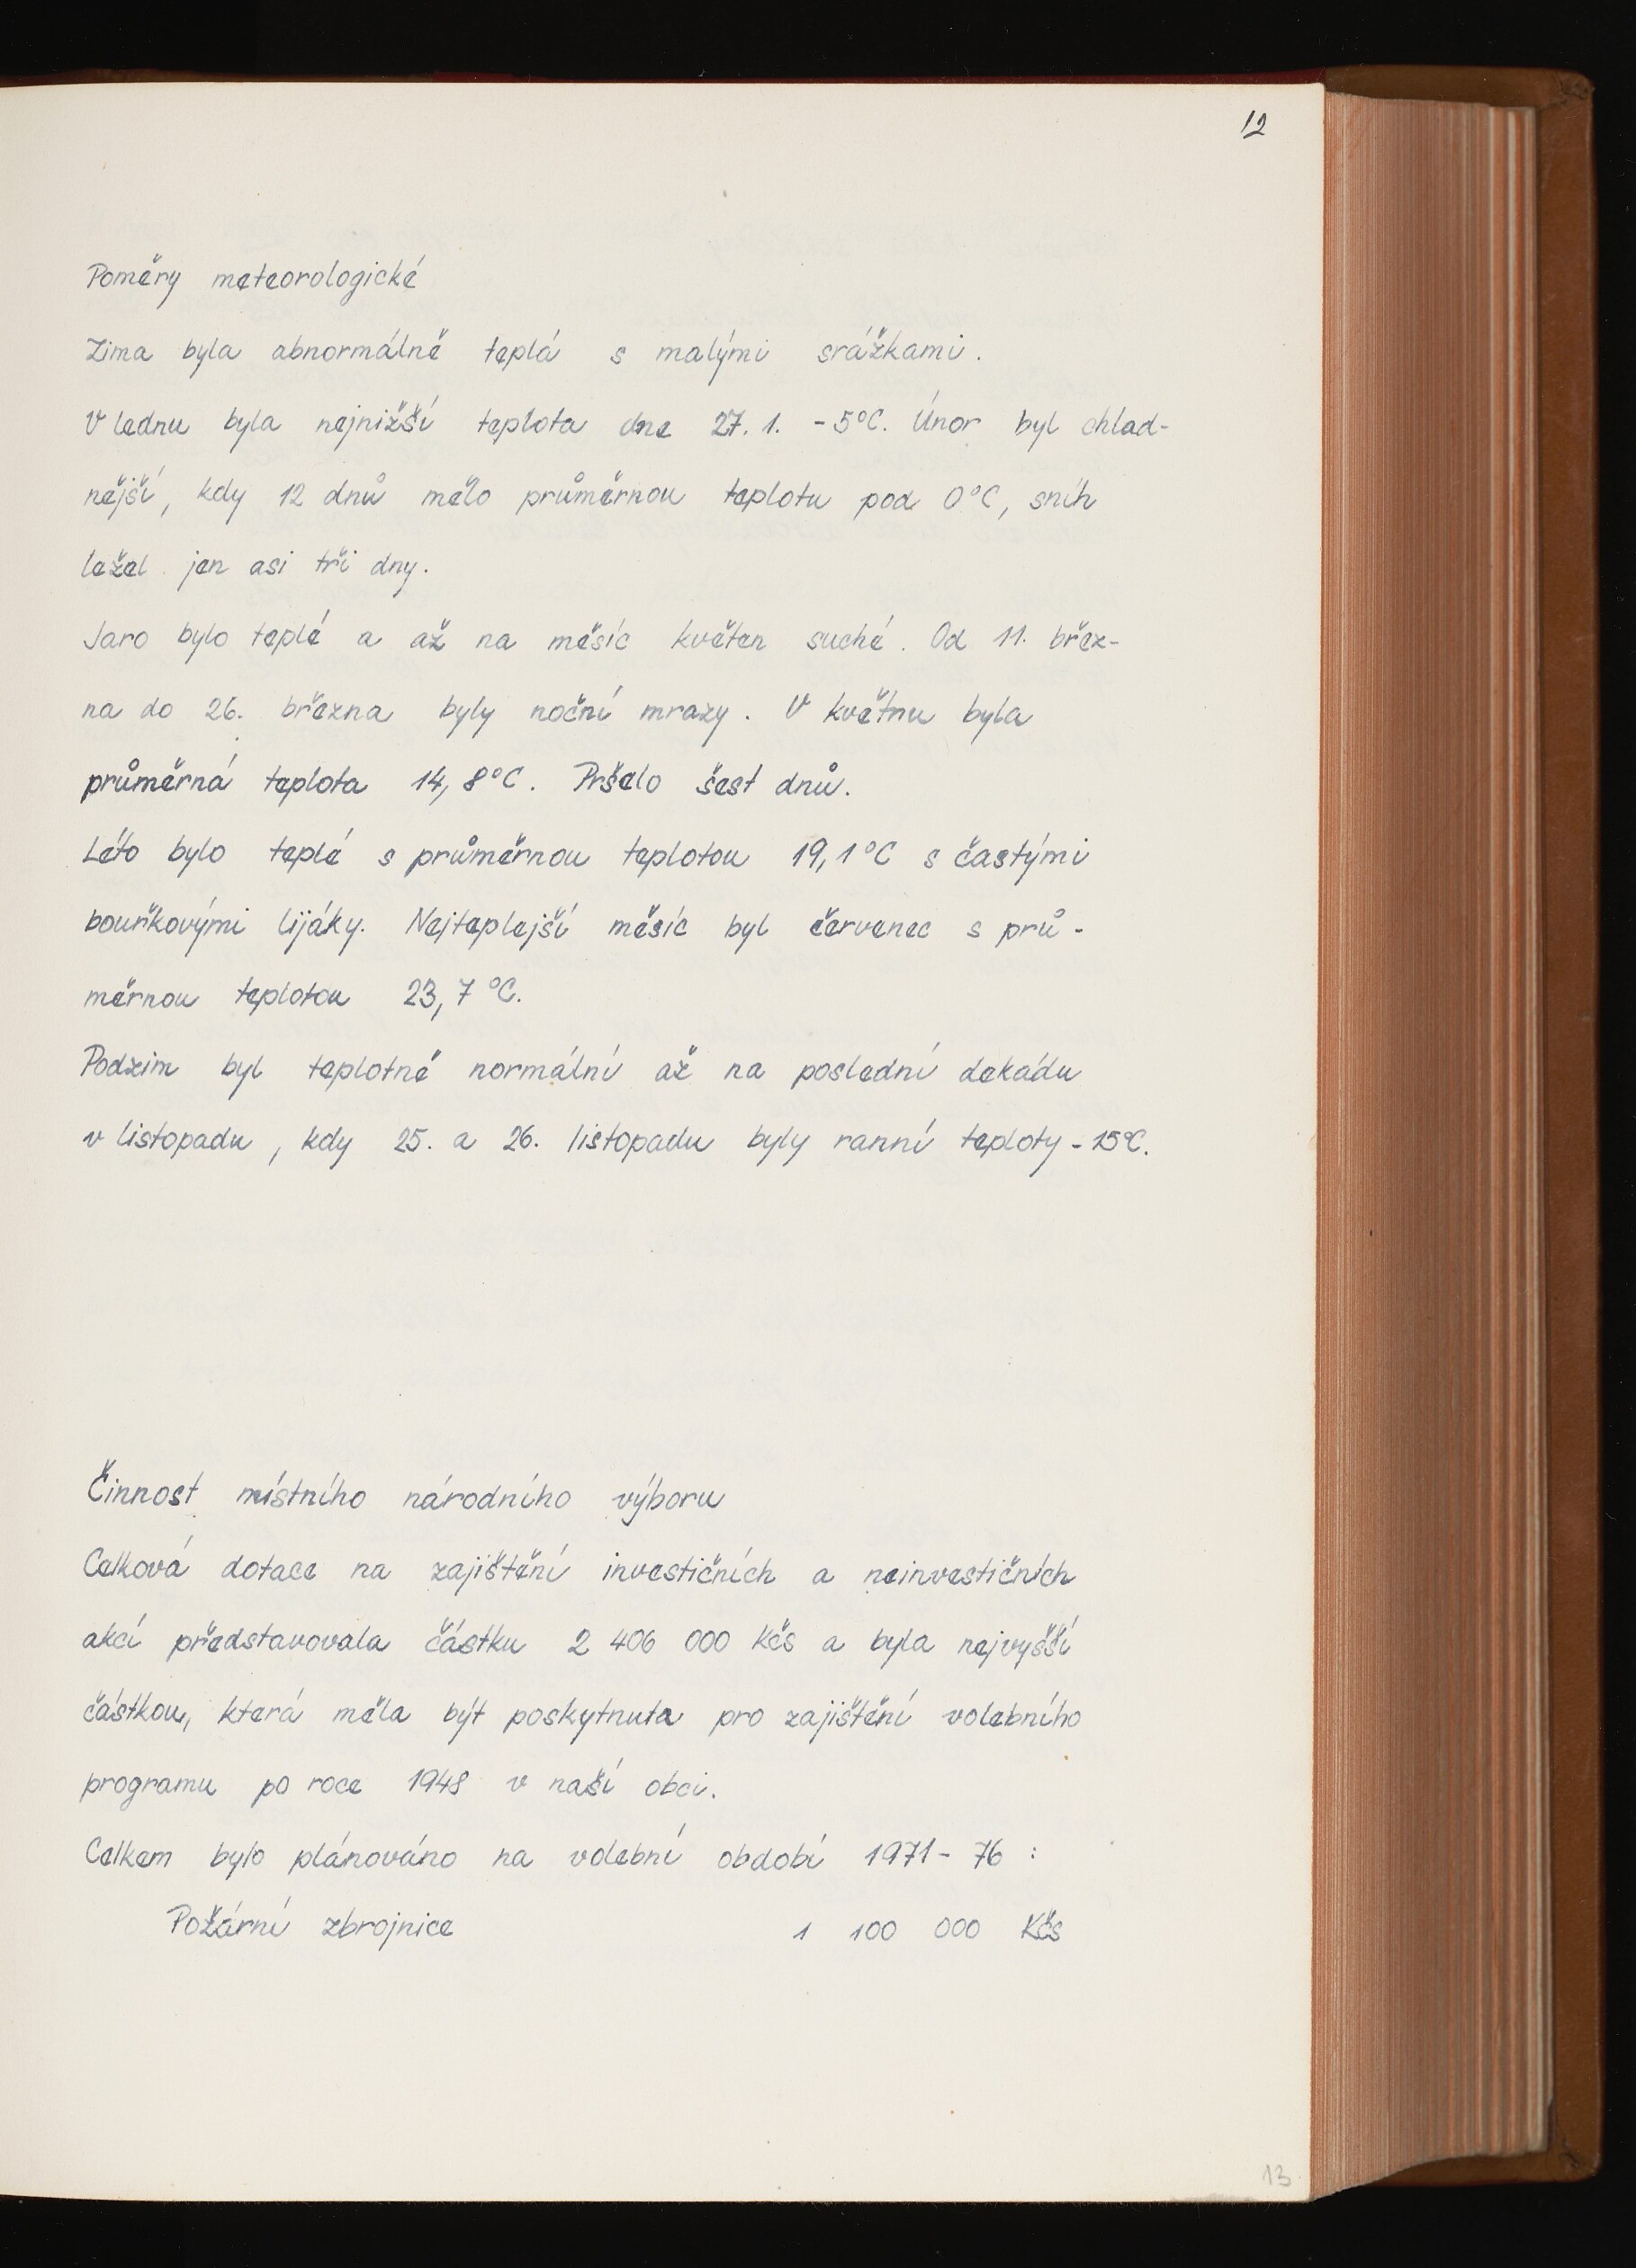 12
Poměry meteorologické
Zima byla abnormálně teplá s malými srážkami.
V lednu byla nejnižší teplota dne 27. 1. -5°C. Únor byl chlad-
nější, kdy 12 dnů mělo průměrnou teplotu pod 0°C, sníh
ležel jen asi tři dny.
Jaro bylo teplé a až na měsíc květen suché. Od 11. břez-
na do 26. března byly noční mrazy. V květnu byla
průměrná teplota 14,8°C. Pršelo šest dnů.
Léto bylo teplé s průměrnou teplotou 19,1°C s častými
bouřkovými lijáky. Nejteplejší měsíc byl červenec s prů-
měrnou teplotou 23,7°C.
Podzim byl teplotně normální až na poslední dekádu
v listopadu, kdy 25. a 26. listopadu byly ranní teploty -15°C.
Činnost místního národního výboru
Celková dotace na zajištění investičních a neinvestičních
akcí představovala částku 2 406 000 Kčs a byla nejvyšší
částkou, která měla být poskytnuta pro zajištění volebního
programu po roce 1948 v naší obci.
Celkem bylo plánováno na volební období 1971-76 :
Požární zbrojnice 1 100 000 Kčs
13